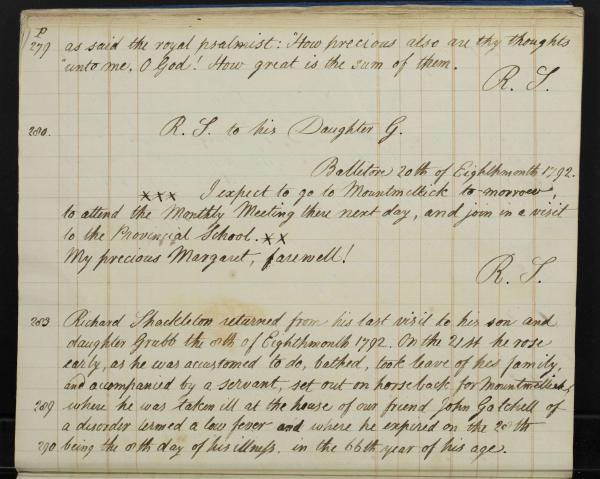 P
279 as said the royal psalmist: "How precious also are thy thoughts
"unto me, O God! How great is the sum of them.
R. S.
280. R. S. to his Daughter G.
Ballitore 20th of Eighthmonth 1792.
xxx I expect to go to Mountmellick to-morrow,
to attend the Monthly Meeting there next day, and join in a visit
to the Provincial School. xx
My precious Margaret, farewell!
R. S.
283 Richard Shackleton returned from his last visit to his son and
daughter Grubb the 8th of Eighthmonth 1792. On the 21st he rose
early, as he was accustomed to do, bathed, took leave of his family,
and acompanied by a servant, set out on horseback for Mountmellick,
289 where he was taken ill at the house of our friend John Gatchell of
a disorder termed a low fever and where he expired on the 28th
290 being the 8th day of his illness. in the 66th year of his age.